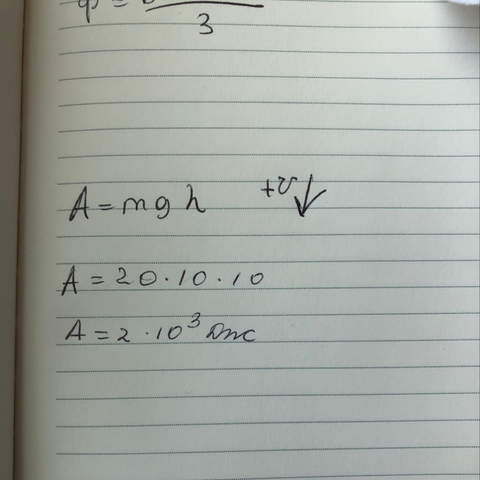 3
A = mgh +v↓
A = 20·10·10
A = 2·10³ Дж